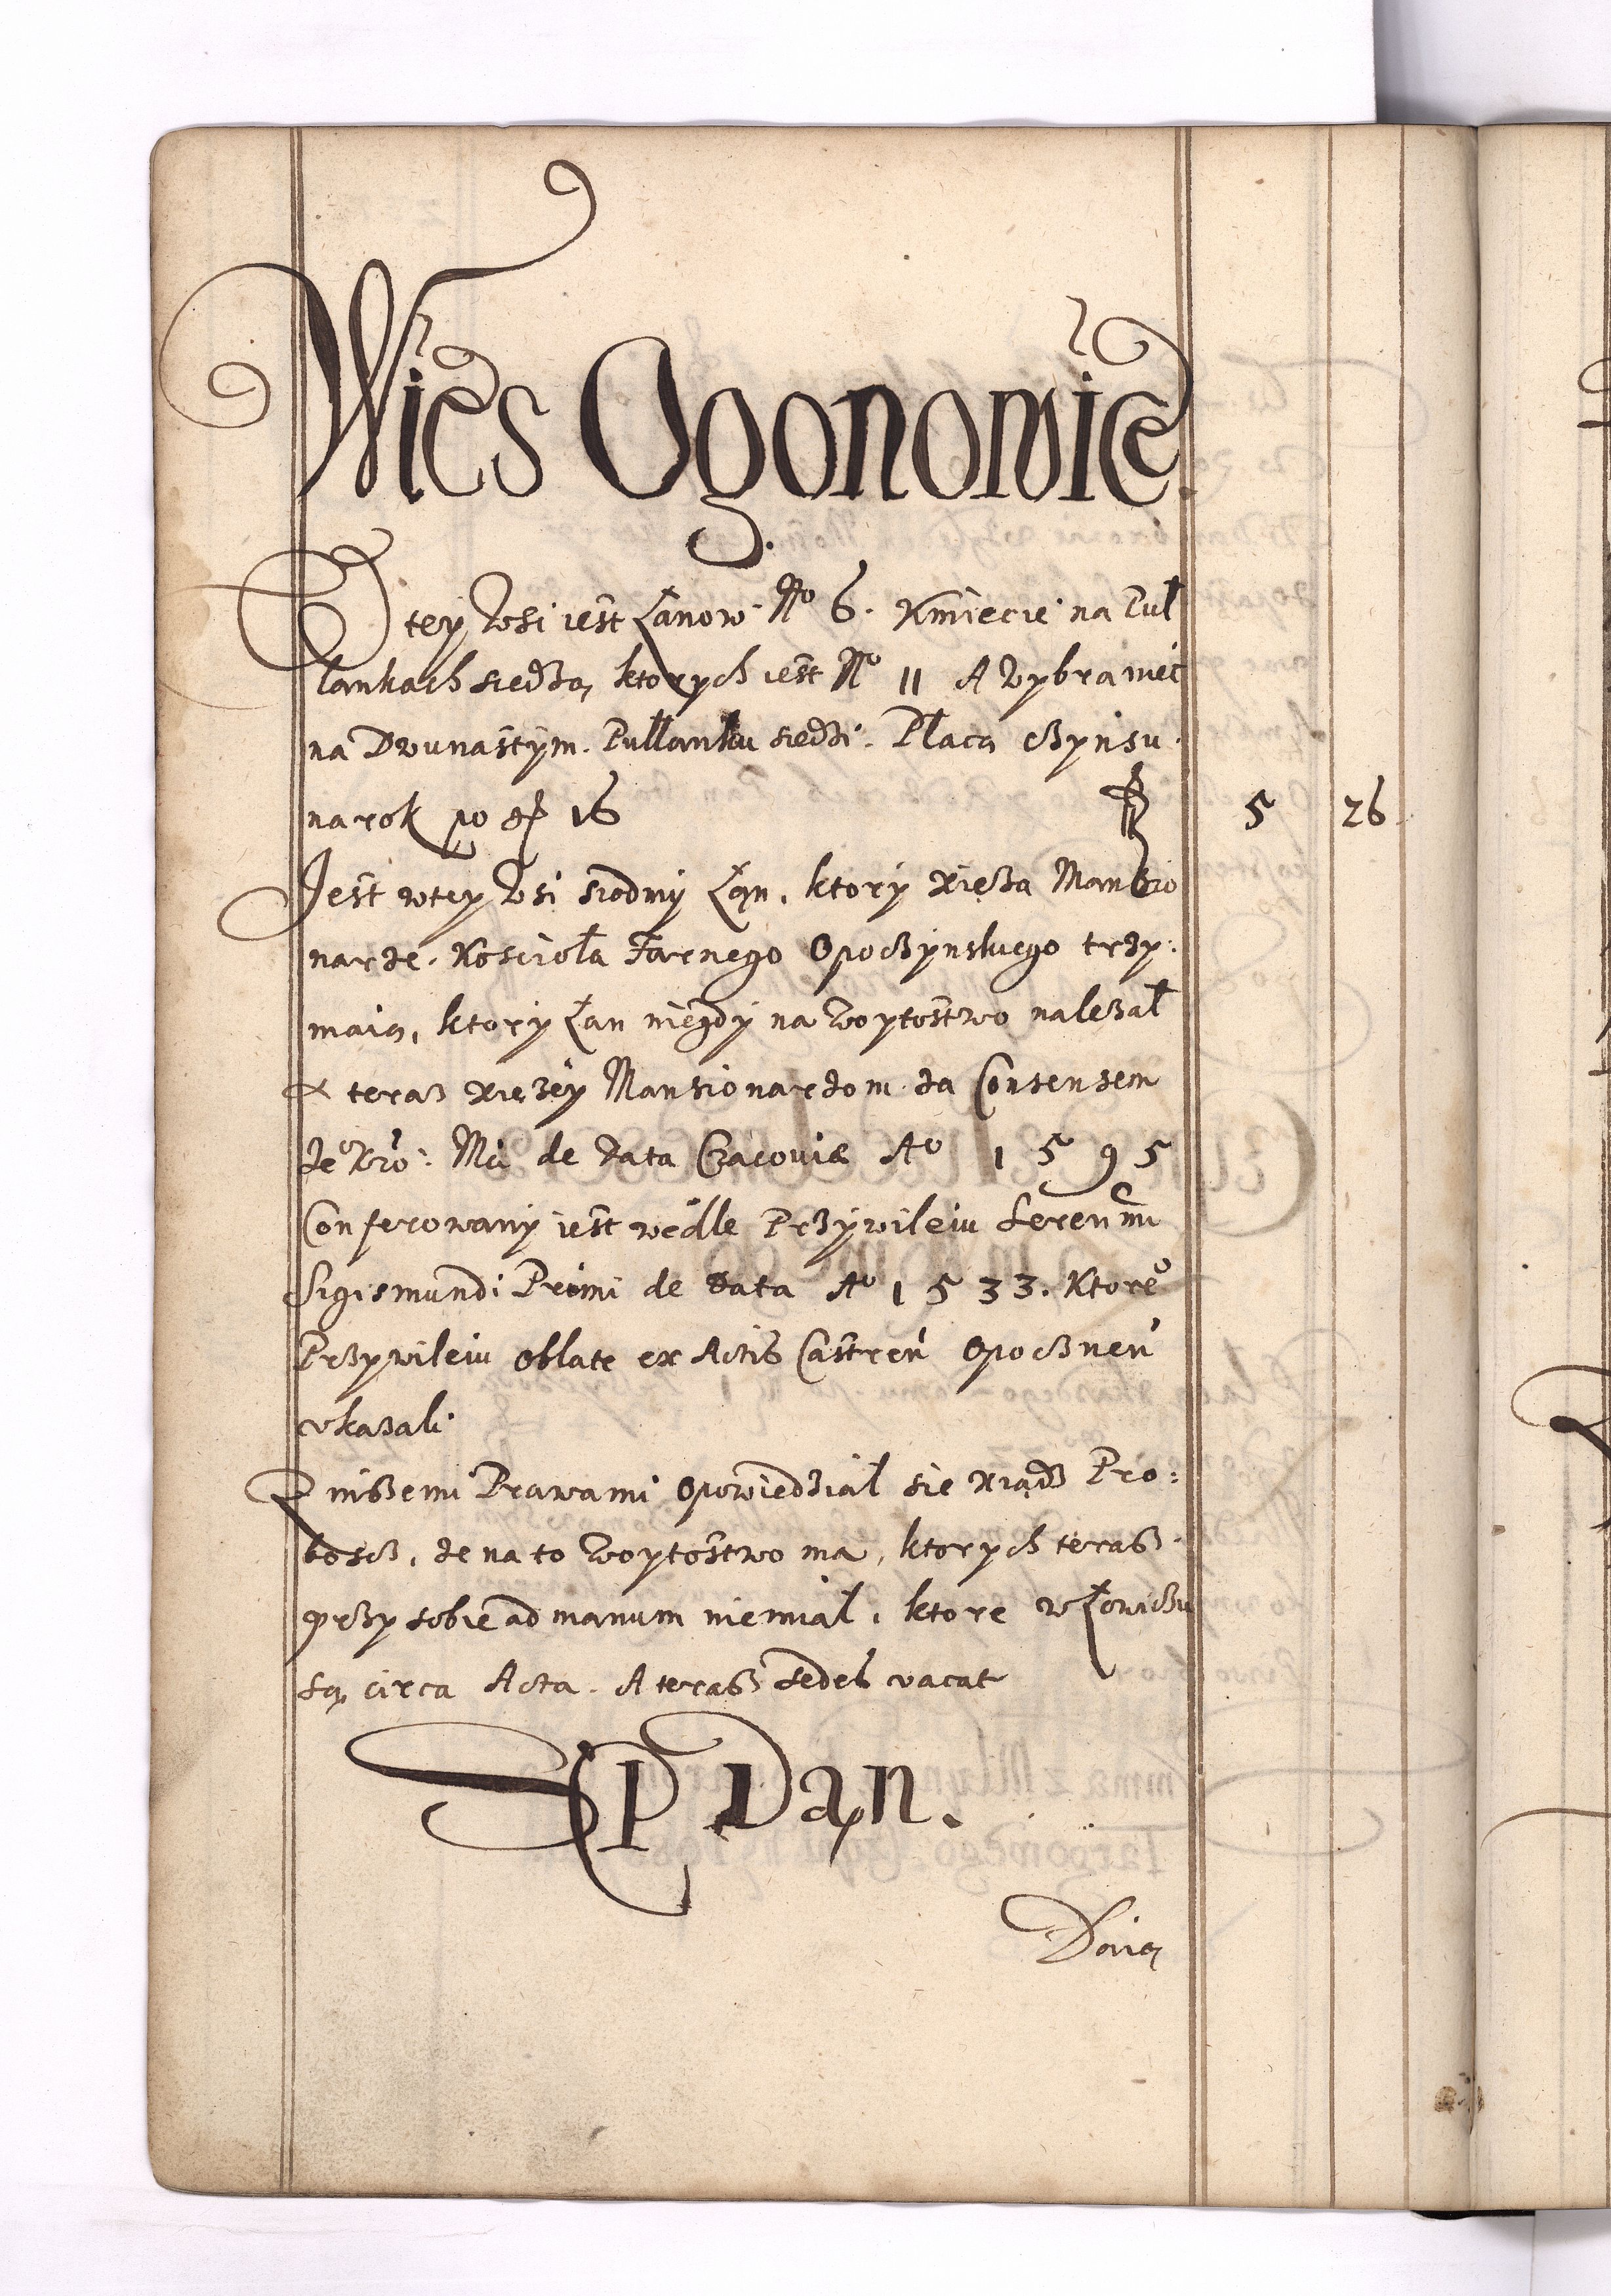 Wies Ogonowice.
W tey Wsi iest Łanow Nro 6. Kmiecie na Puł
łankach siedzą, ktorych iest Nro 11 A Wybraniec
na Dwunastym. Pułłanku siedzi. Płacą czynsu
na rok po gr 16 fl 5 26
Jest w tey Wsi siodmy Łan, ktory xięża Mansio
narze. Koscioła Farnego Opoczynskiego trzy:
maią, ktory Łan niegdy na Woytostwo należał
A teraz xiężey Mansionarzom za Consensem
Je⁰ Kro: Mci de data Cracoviæ A⁰ 1595
Conferowany iest wedle Przywileiu Serenmi
Sigismundi Primi de Data A⁰ 1533. Ktore⁰
Przywileiu Oblate ex Actis Castren Opocznen
ukazali
Z inszemi Prawami Opowiedział sie xiądz Pro:
boscz, ze na to Woytostwo ma, ktorych teraz
przy sobie ad manum niemiał, ktore w Łowiczu
są circa Acta. A teraz sedes vacat
SP Dan.
Daią